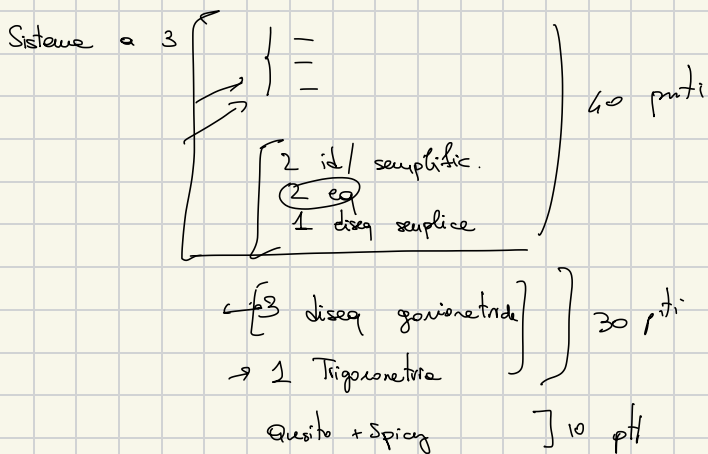 Sistema a 3
40 punti
2 id/ semplific.
2 eq
1 diseq semplice
3 diseq goniometriche
30 pti
→ 1 Trigonometria
Quesito + Spicy
10 pti